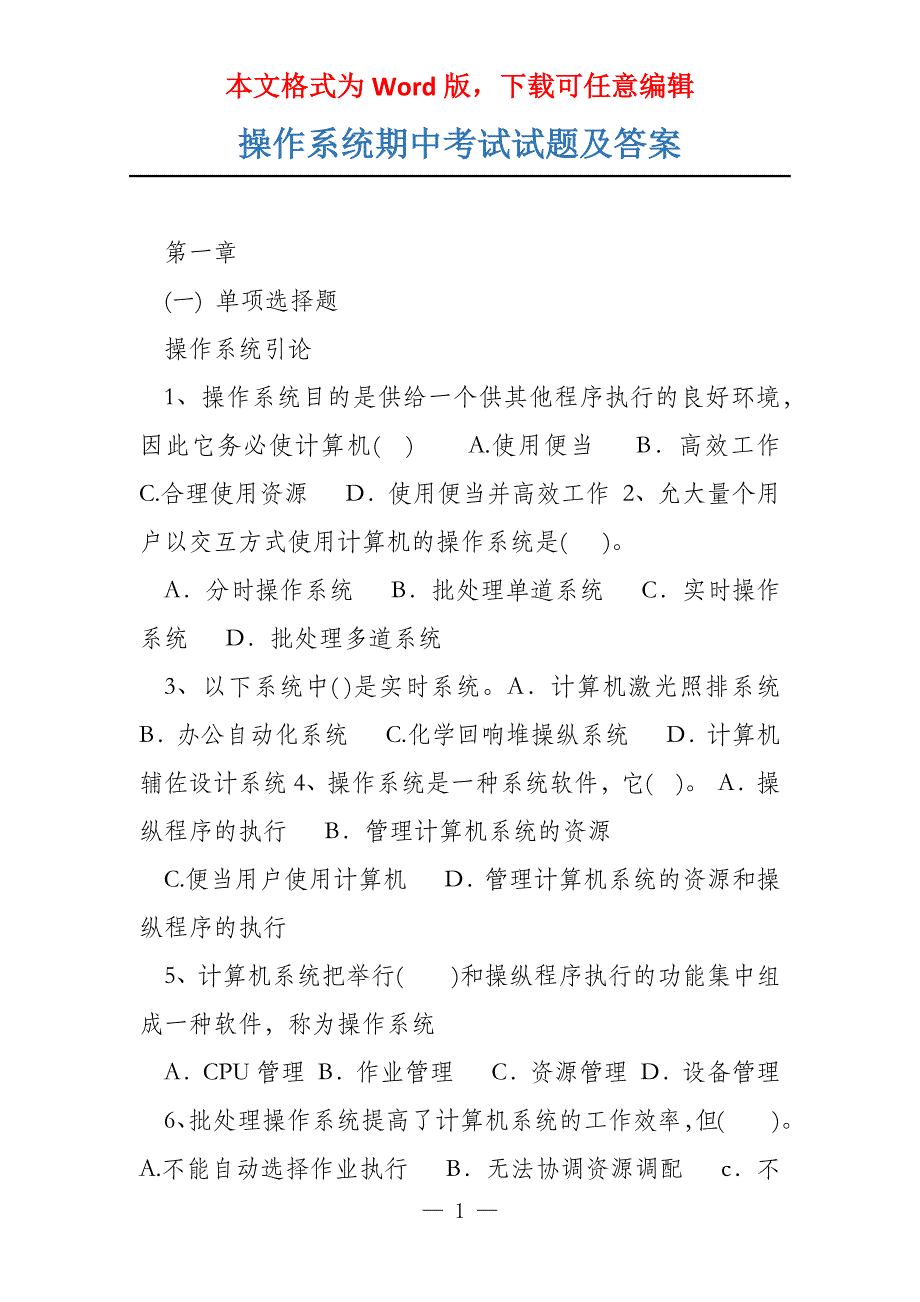 本文格式为 Word 版，下载可任意编辑
操作系统期中考试试题及答案
第一章
(一) 单项选择题
操作系统引论
1、操作系统目的是供给一个供其他程序执行的良好环境，
因此它务必使计算机( ) A.使用便当 B．高效工作
C.合理使用资源 D．使用便当并高效工作 2、允大量个用
户以交互方式使用计算机的操作系统是( )。
A．分时操作系统 B．批处理单道系统 C．实时操作
系统 D．批处理多道系统
3、以下系统中()是实时系统。A．计算机激光照排系统
B．办公自动化系统 C.化学回响堆操纵系统 D．计算机
辅佐设计系统 4、操作系统是一种系统软件，它( )。 A．操
纵程序的执行 B．管理计算机系统的资源
C.便当用户使用计算机 D．管理计算机系统的资源和操
纵程序的执行
5、计算机系统把举行( )和操纵程序执行的功能集中组
成一种软件，称为操作系统
A．CPU 管理 B．作业管理 C．资源管理 D．设备管理
6、批处理操作系统提高了计算机系统的工作效率，但( )。
A.不能自动选择作业执行 B．无法协调资源调配 c．不
— 1 —